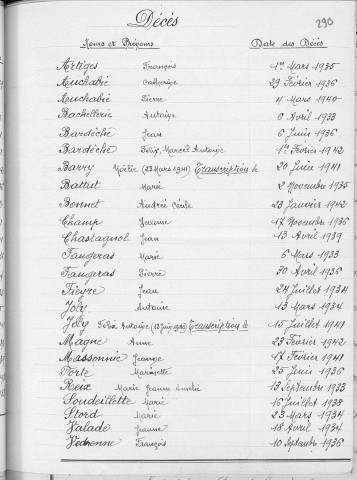 Décès
290
Noms et Prénoms Date des Décès
Artiges François 1er Mars 1935
Auchabie Catherine 29 Février 1936
Auchabie Pierre 4 Mars 1940
Bachellerie Antoine 6 Avril 1933
Bardèche Jean 6 Juin 1936
Bardèche Félix, Marcel Antoine 1er Février 1942
Barry (23 Mars 1941) Transcription le 20 Juin 1941
Battut Marie 2 Novembre 1935
Bonnet André 23 Janvier 1942
Champ Jeanne 17 Novembre 1936
Chastagnol Jean 13 Avril 1939
Faugeras Marie 6 Mars 1933
Faugeras Pierre 30 Avril 1936
Fieyre Jean 24 Juillet 1934
Joly Antoine 13 Mars 1934
Joly Félix Antoine Transcription le 15 Juillet 1941
Magne Anne 23 Février 1942
Massonnie 17 Février 1941
Porte 25 Juin 1936
Reix Marie Jeanne Amélie 13 Septembre 1933
Soudeillette Marie 16 Juillet 1938
Stord Marie 23 Mars 1934
Valade Jeanne 18 Avril 1934
Védrenne François 10 Septembre 1936